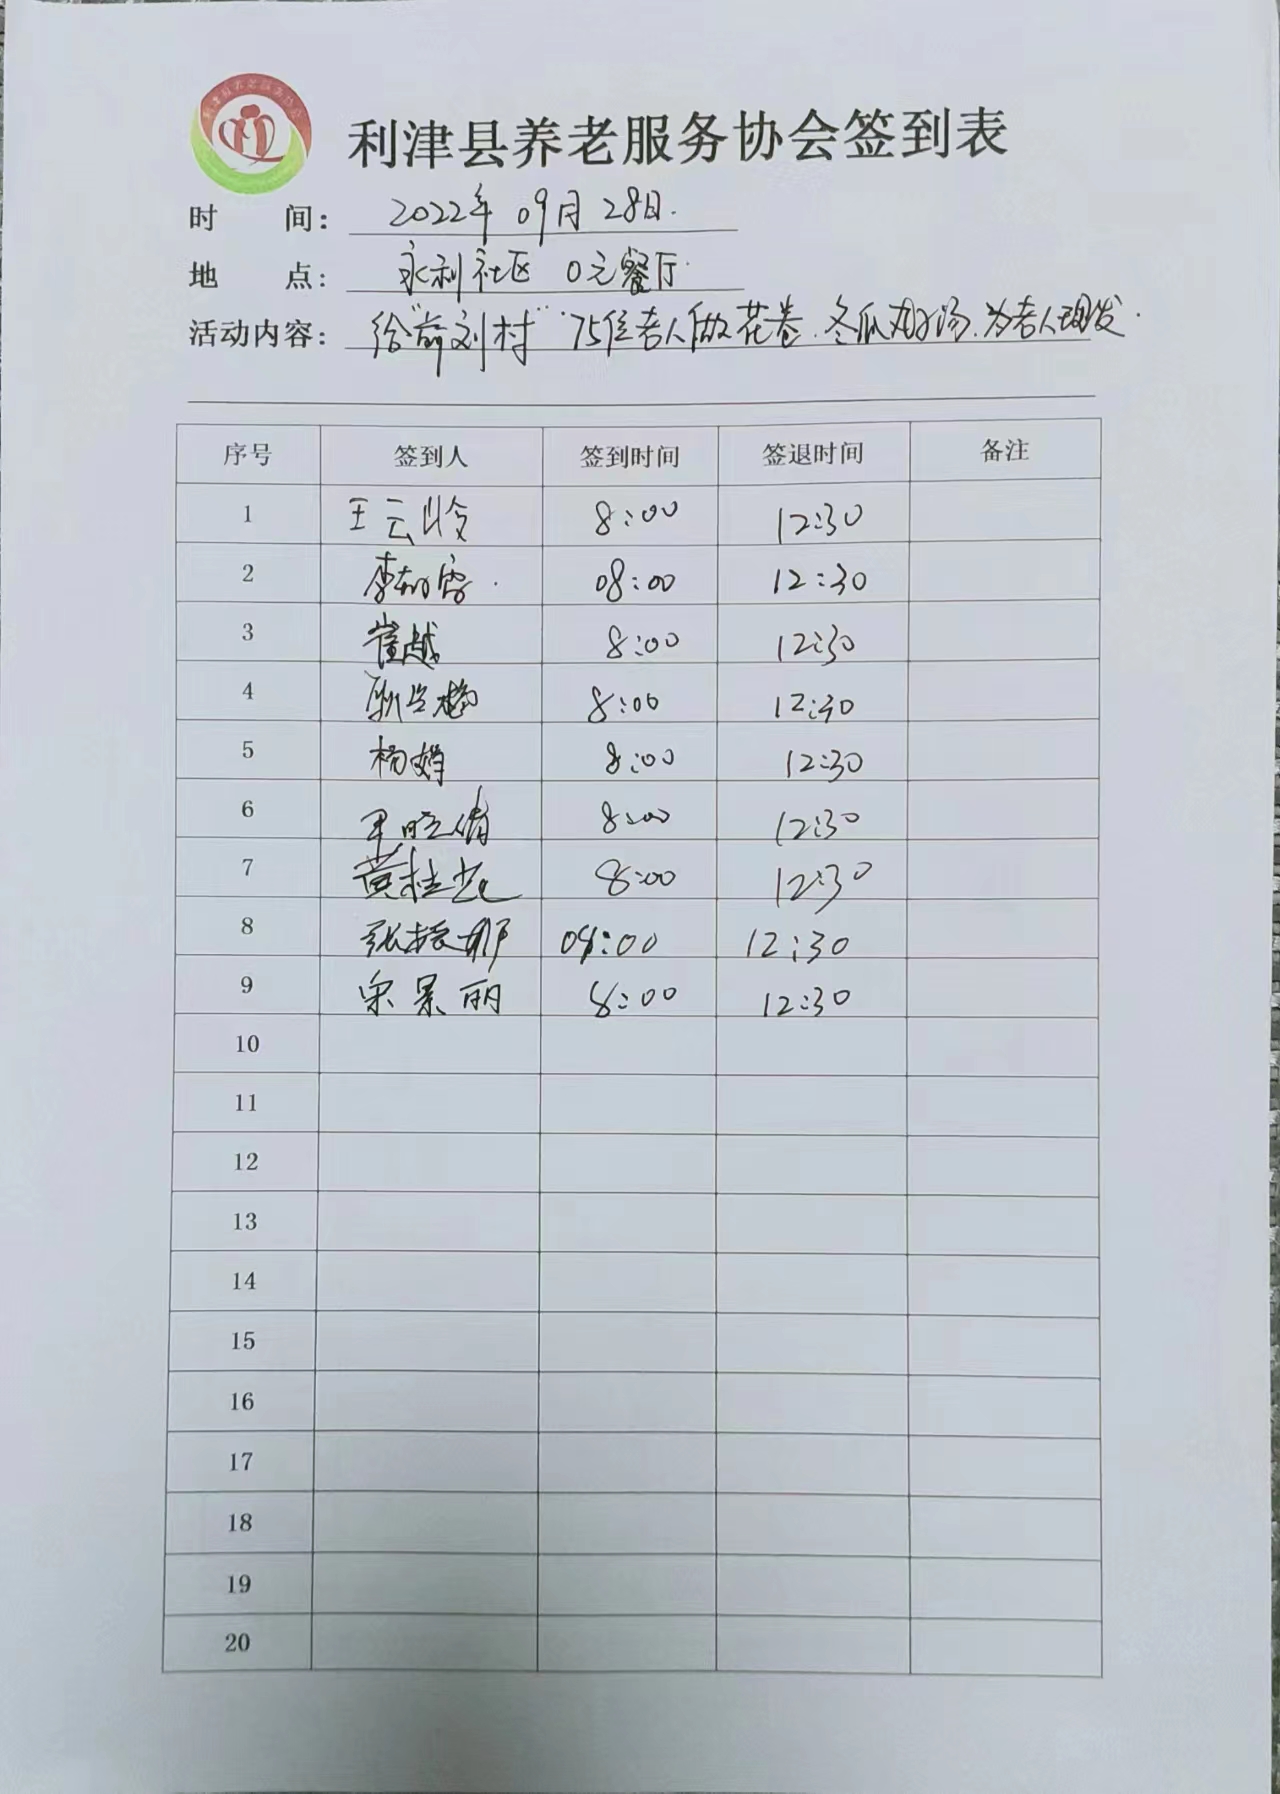 利津县养老服务协会
利津县养老服务协会签到表
时 间: 2022年09月28日.
地 点: 永利社区 0元餐厅.
活动内容: 给"前刘村"75位老人做花卷.冬瓜丸子汤.为老人理发.
序号 签到人 签到时间 签退时间 备注
1 王云岭 8:00 12:30
2 李 08:00 12:30
3 崔越 8:00 12:30
4 8:00 12:30
5 杨娟 8:00 12:30
6 王晓倩 8:00 12:30
7 黄桂花 8:00 12:30
8 张振娜 08:00 12:30
9 宋景丽 8:00 12:30
10
11
12
13
14
15
16
17
18
19
20